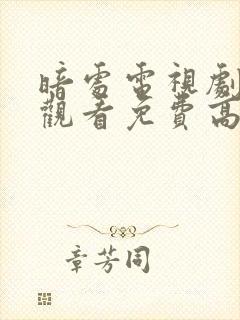 暗處電視劇
觀看免費高
章芳同